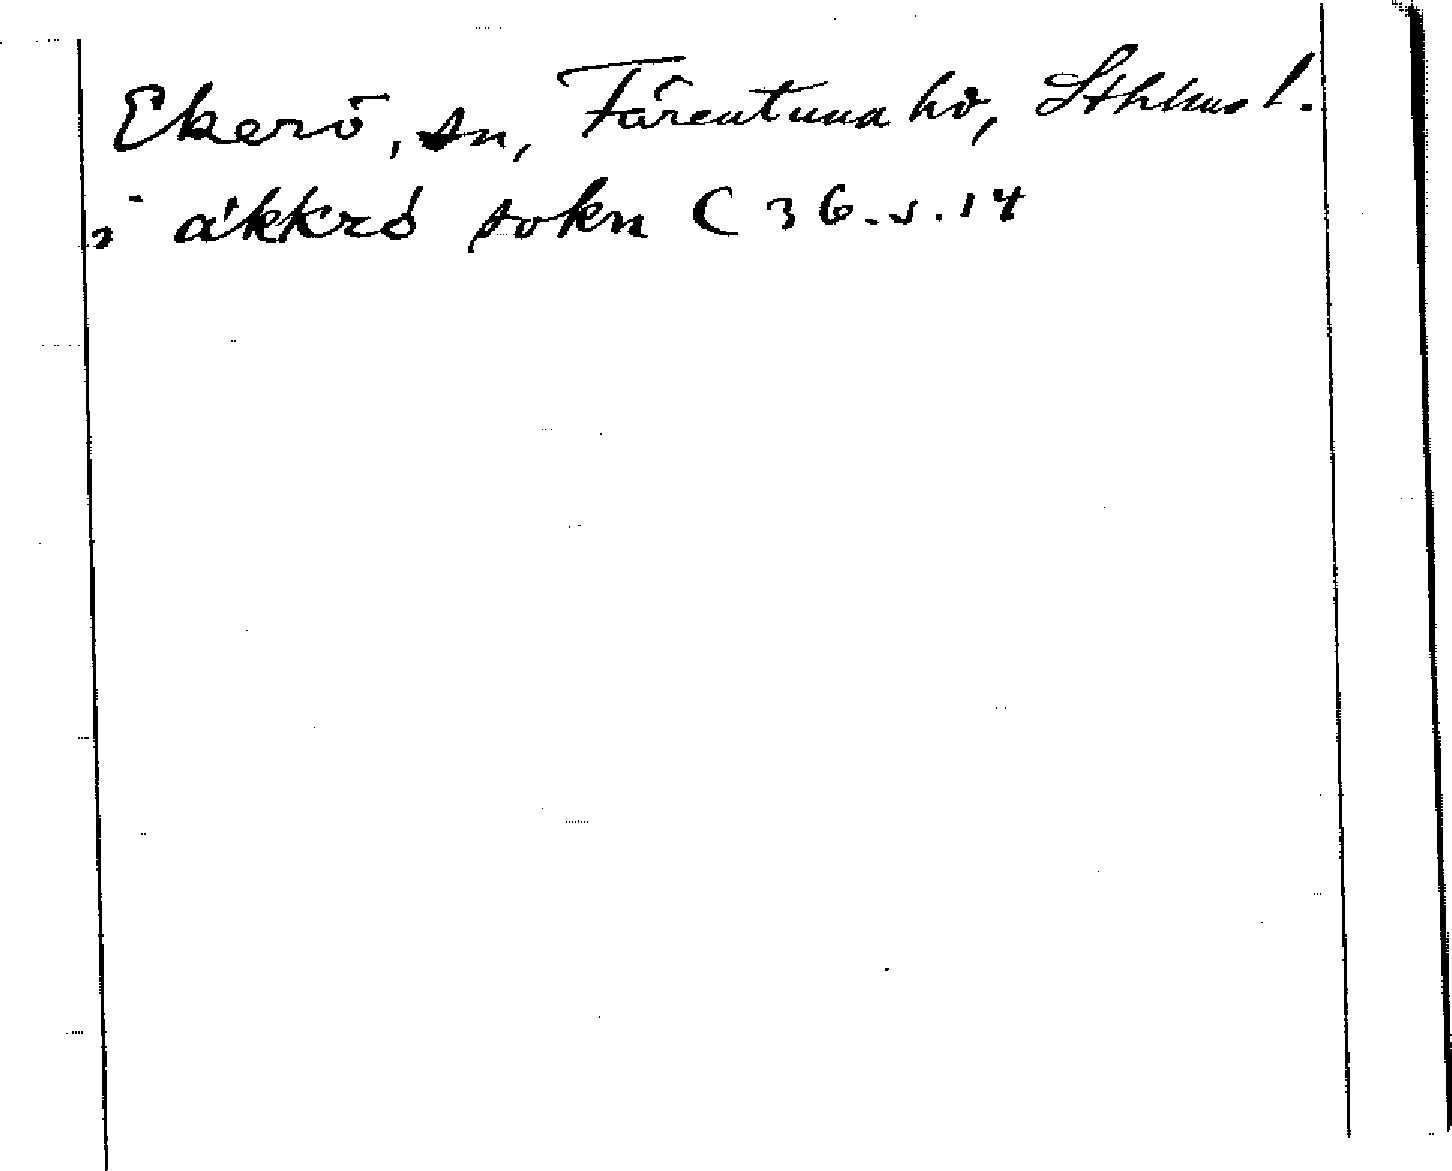 Ekerö, sn, Färentuna hd, Sthlms l.
i ákkró sokn C 36. s. 14